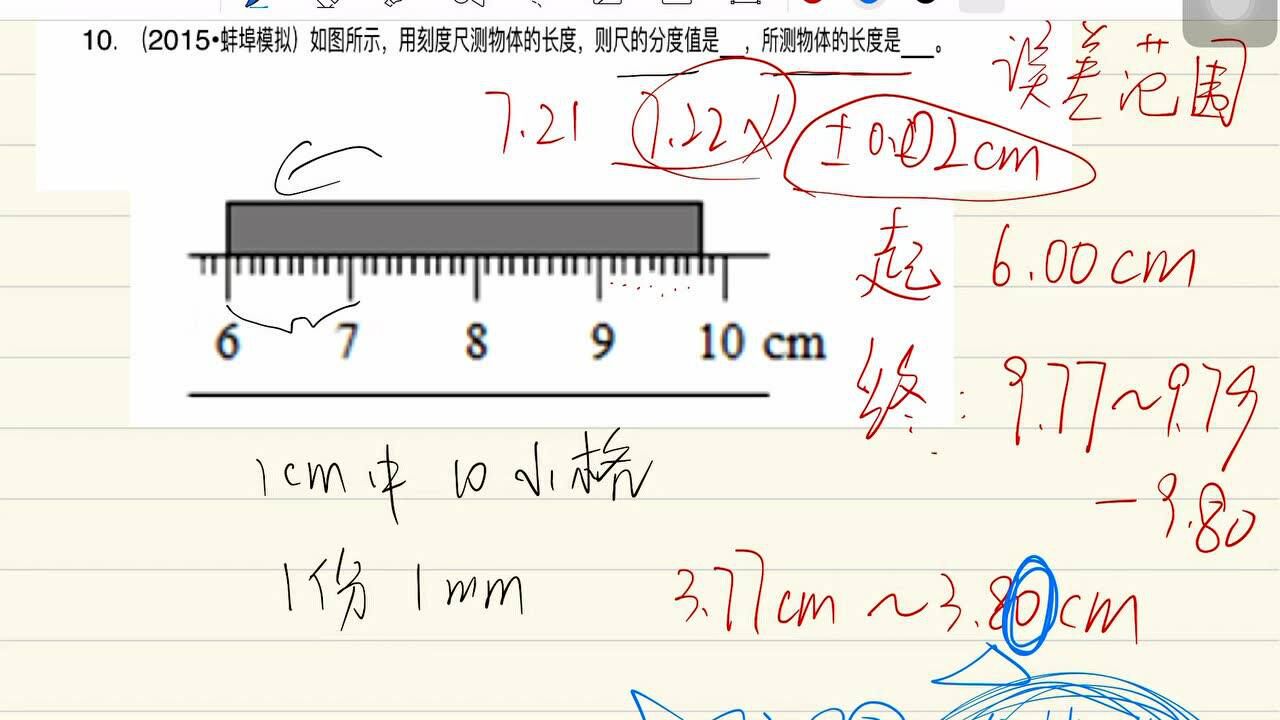 10. (2015•蚌埠模拟) 如图所示，用刻度尺测物体的长度，则尺的分度值是__，所测物体的长度是___。
误差范围
7.21 7.22 ±0.02cm
起 6.00cm
6 7 8 9 10 cm
终: 9.77~9.79
-9.80
1cm中 10小格
1份 1mm
3.77cm ~3.80cm